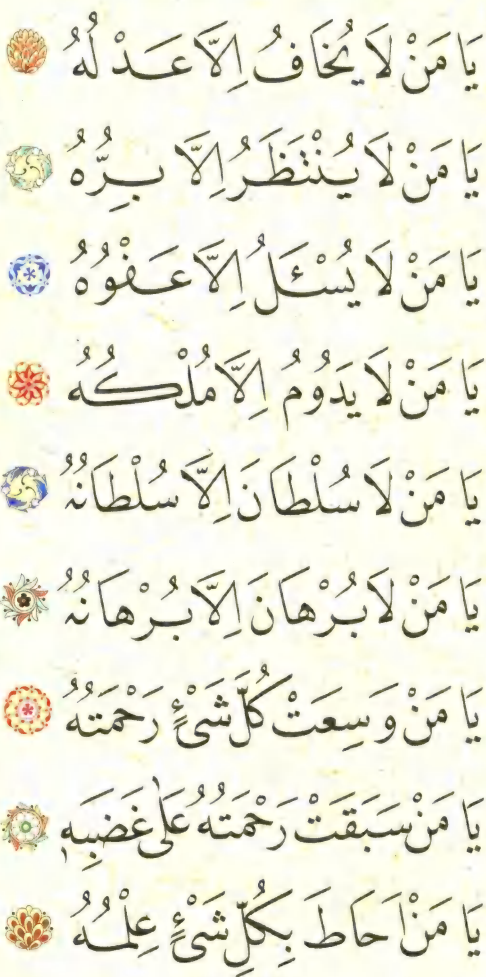 يَا مَنْ لَا يُخَافُ اِلَّا عَدْلُهُ
يَا مَنْ لَا يُنْتَظَرُ اِلَّا بِرُّهُ
يَا مَنْ لَا يُسْئَلُ اِلَّا عَفْوُهُ
يَا مَنْ لَا يَدُومُ اِلَّا مُلْكُهُ
يَا مَنْ لَا سُلْطَانَ اِلَّا سُلْطَانُهُ
يَا مَنْ لَا بُرْهَانَ اِلَّا بُرْهَانُهُ
يَا مَنْ وَسِعَتْ كُلَّ شَیْءٍ رَحْمَتُهُ
يَا مَنْ سَبَقَتْ رَحْمَتُهُ عَلٰى غَضَبِهٖ
يَا مَنْ اَحَاطَ بِكُلِّ شَیْءٍ عِلْمُهُ